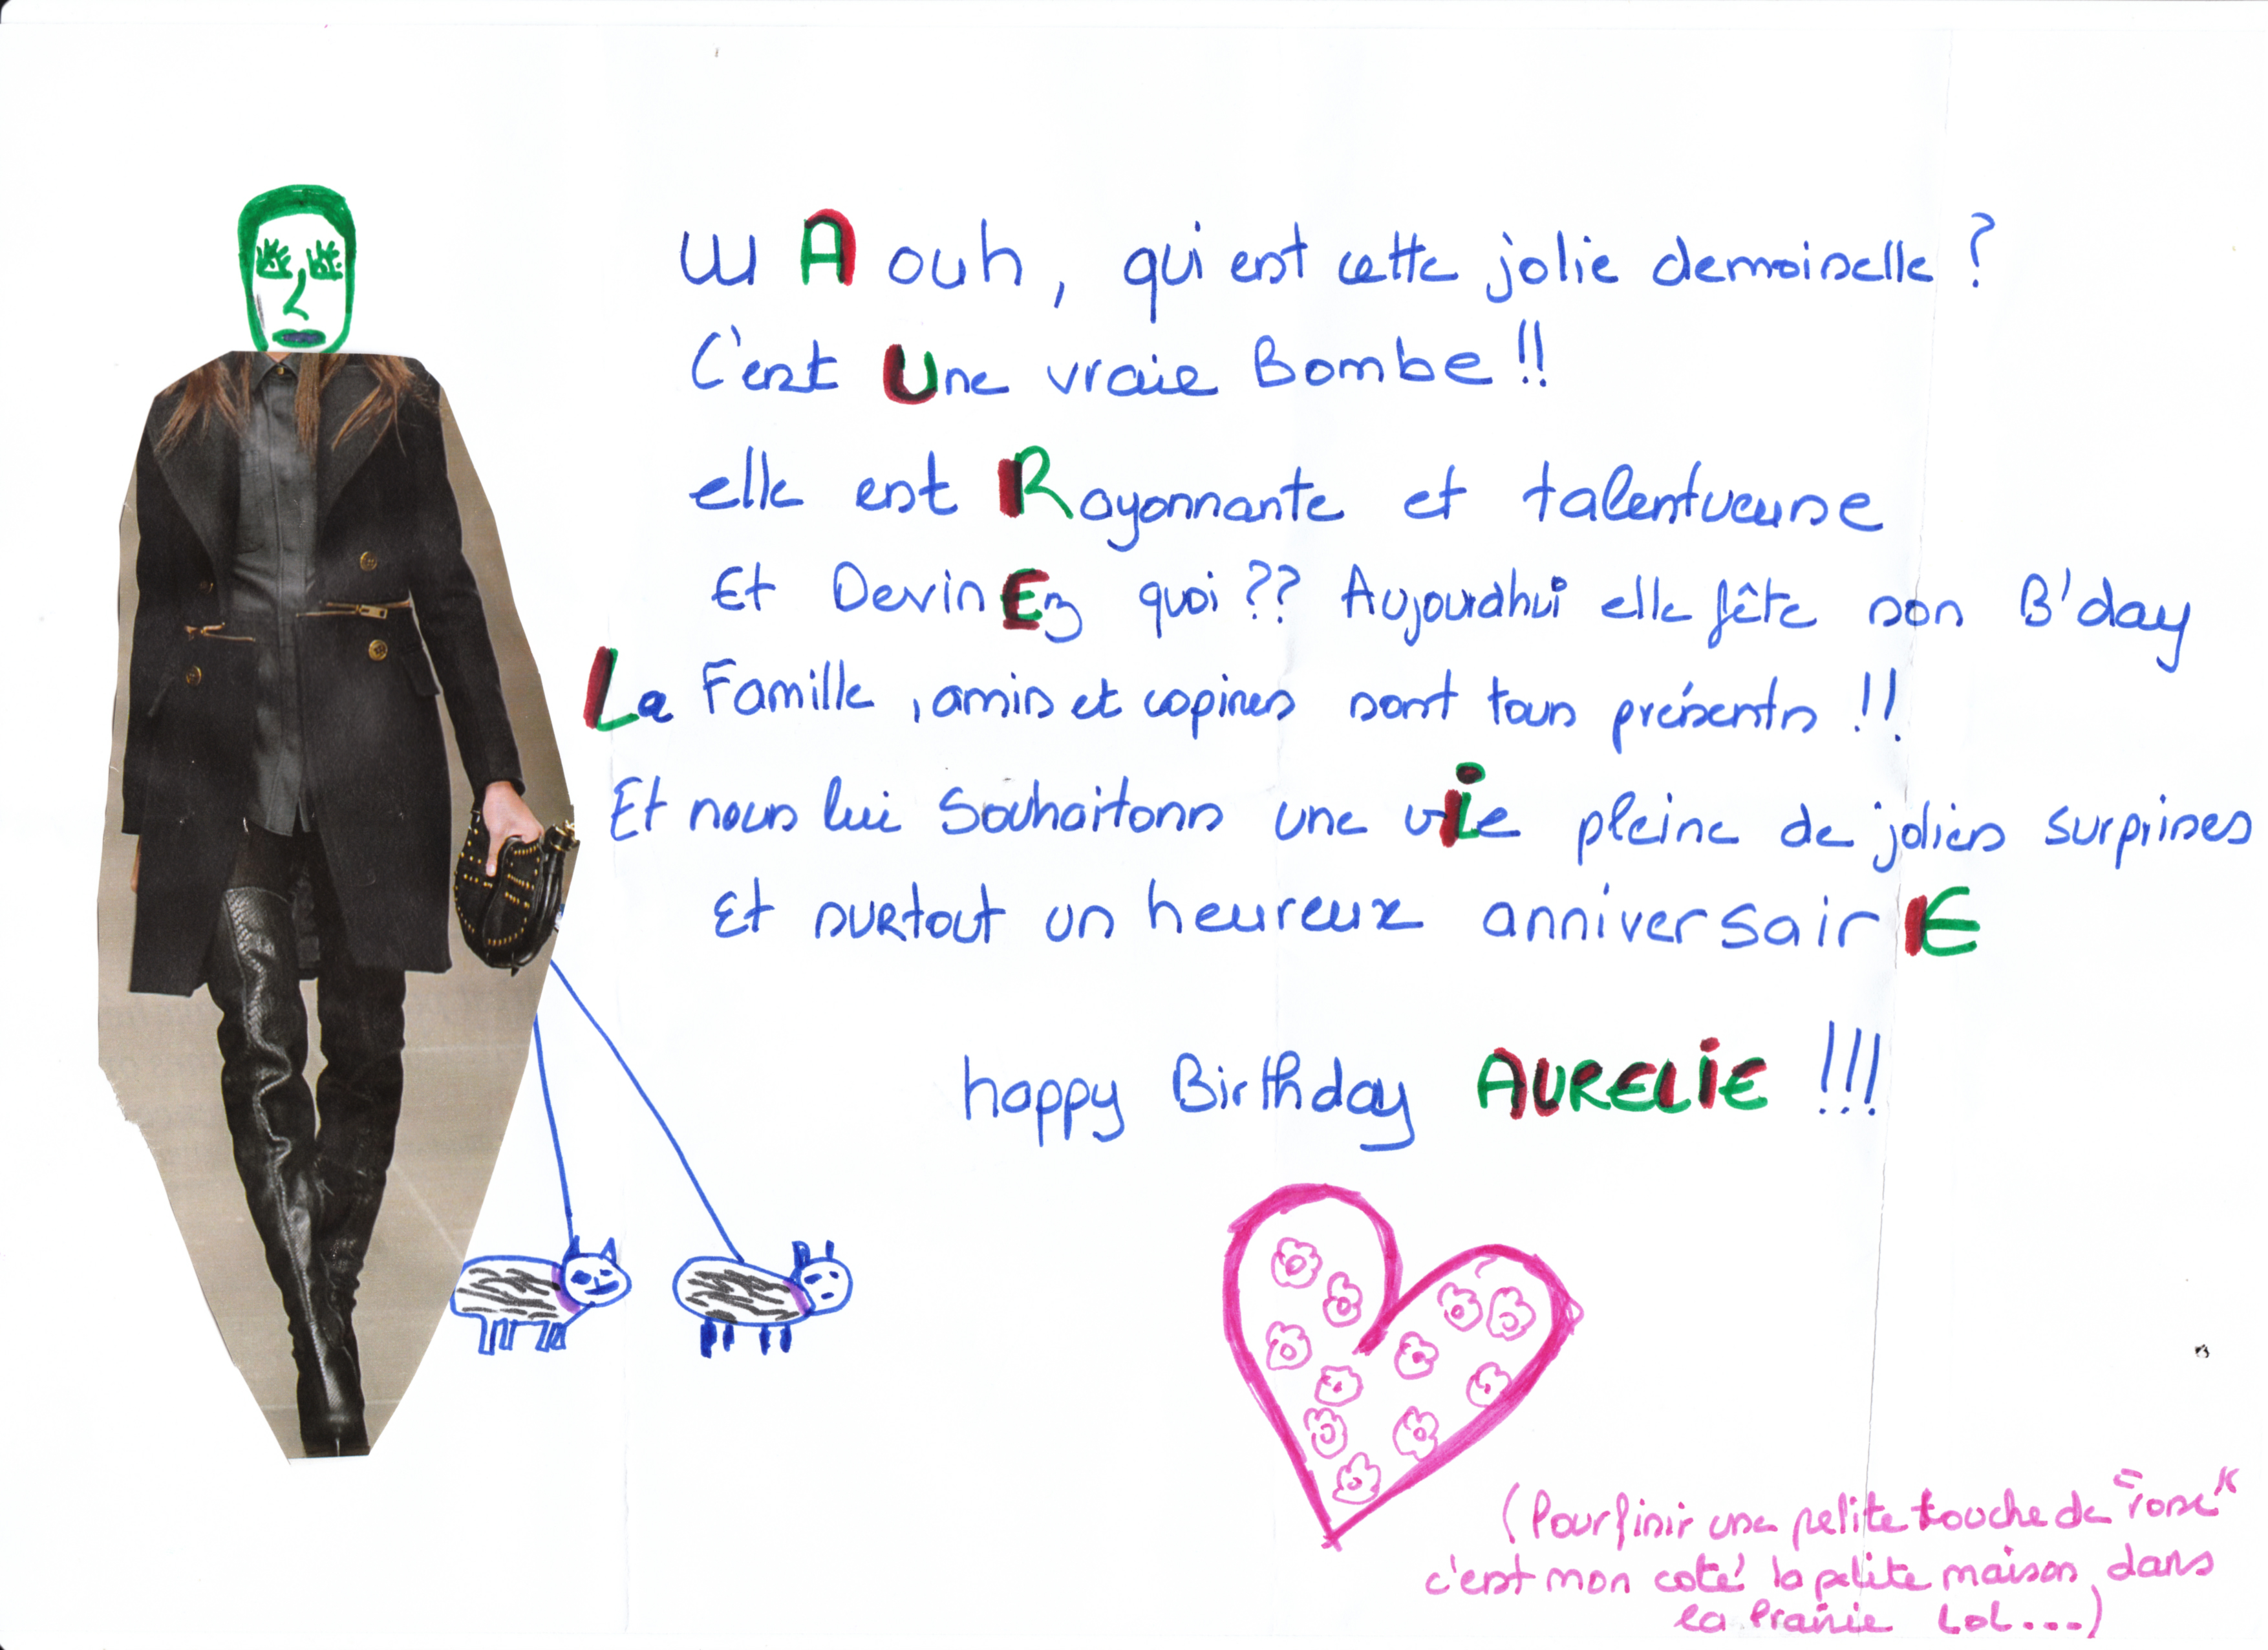 WAouh, qui est cette jolie demoiselle ?
C'est Une vraie Bombe !!
elle est Rayonnante et talentueuse
Et DevinEz quoi ?? Aujourdhui elle fête son B'day
La Famille, amis et copines sont tous présents !!
Et nous lui Souhaitons une vie pleine de jolies surprises
Et surtout un heureux anniversairE
happy Birthday AURELiE !!!
(Pour finir une petite touche de "rose"
c'est mon coté la petite maison dans
la Prairie LoL....)